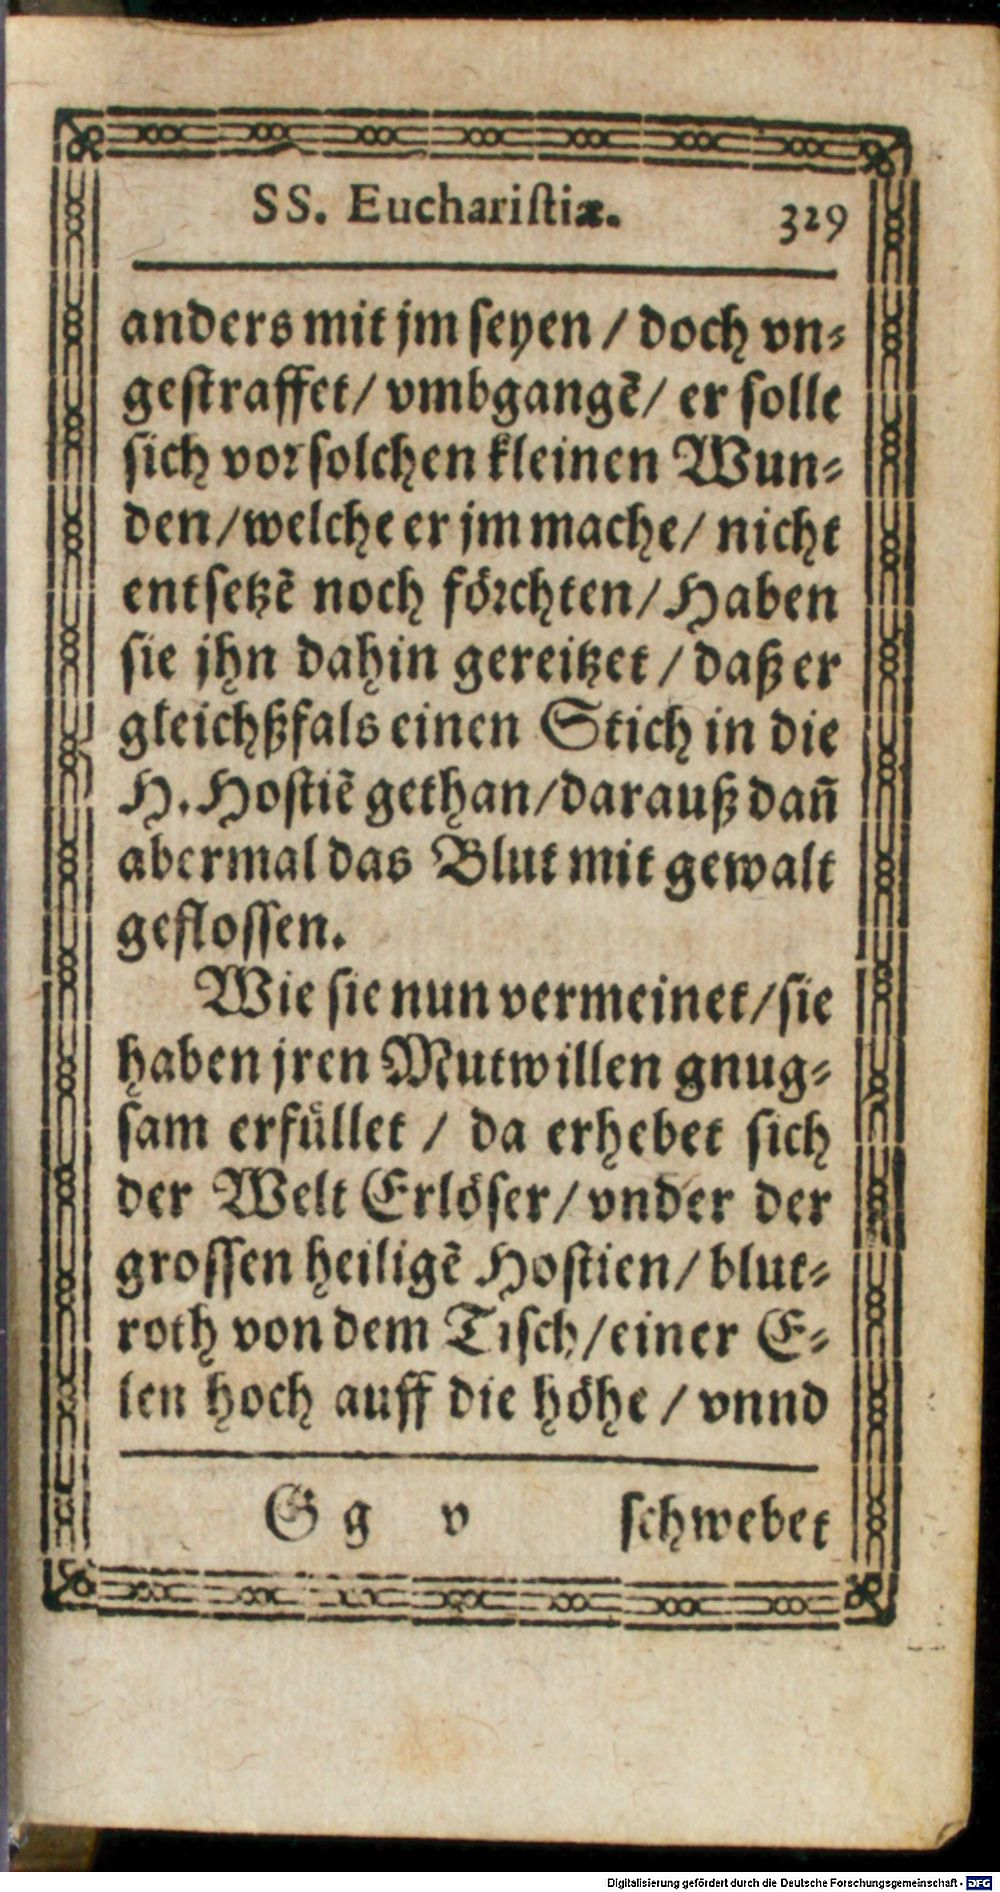 SS. Euchariſtiæ. 329
anders mit jm ſeyen / doch vn⸗
geſtraffet / vmbgangẽ / er ſolle
ſich vor ſolchen kleinen Wun⸗
den / welche er jm mache / nicht
entſetzẽ noch förchten / Haben
ſie jhn dahin gereitzet / daß er
gleichßfals einen Stich in die
H. Hoſtiẽ gethan / darauß dañ
abermal das Blut mit gewalt
gefloſſen.
Wie ſie nun vermeinet / ſie
haben jren Mutwillen gnug⸗
ſam erfüllet / da erhebet ſich
der Welt Erlöſer / vnder der
groſſen heiligẽ Hoſtien / blut⸗
roth von dem Tiſch / einer E⸗
len hoch auff die höhe / vnnd
G g v ſchwebet
Digitalisierung gefördert durch die Deutsche Forschungsgemeinschaft - DFG